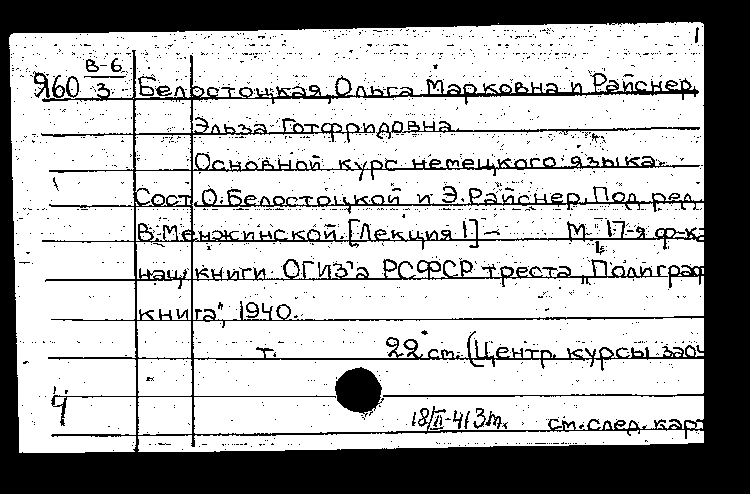 В-6
Я60 3 Белостоцкая, Ольга Марковна и Райснер,
Эльза Готфридовна.
Основной курс немецкого языка.
Сост. О. Белостоцкой и Э. Райснер. Под ред.
В. Менжинской. [Лекция 1] – М., 17-я ф-ка
нац. книги ОГИЗ'а РСФСР треста „Полиграф
книга", 1940.
т. 22 ст. (Центр. курсы заоч
4
18/II-41 3т. см. след. карт